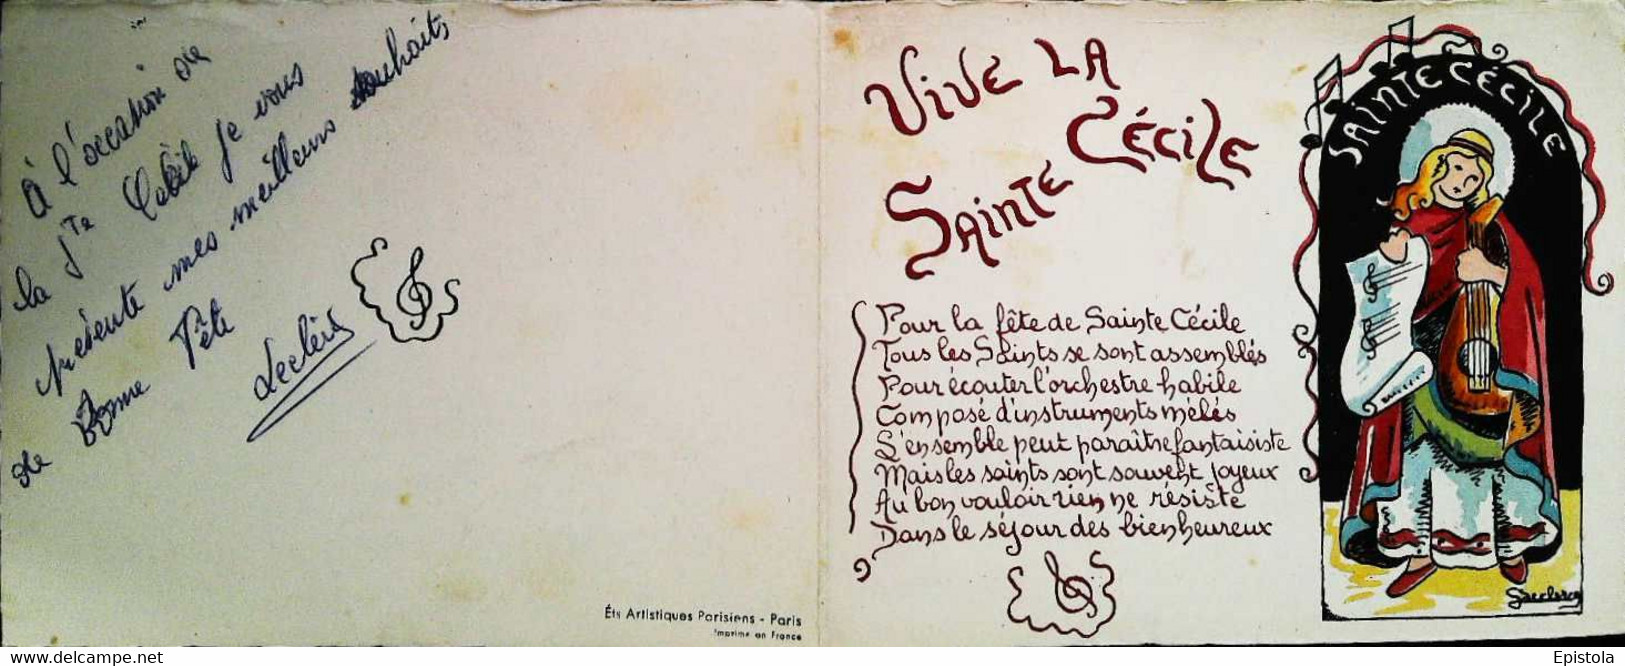 à l'occasion de
la Ste Cécile je vous
présente mes meilleurs souhaits
de Bonne Fête
Leclerc
Éts Artistiques Parisiens - Paris
Imprimé en France
VIVE LA
SAINTE CÉCILE
Pour la fête de Sainte Cécile
Tous les Saints se sont assemblés
Pour écouter l'orchestre habile
Composé d'instruments mêlés
L'ensemble peut paraître fantaisiste
Mais les saints sont souvent joyeux
Au bon vouloir rien ne résiste
Dans le séjour des bienheureux
SAINTE CÉCILE
delcampe.net
Epistola